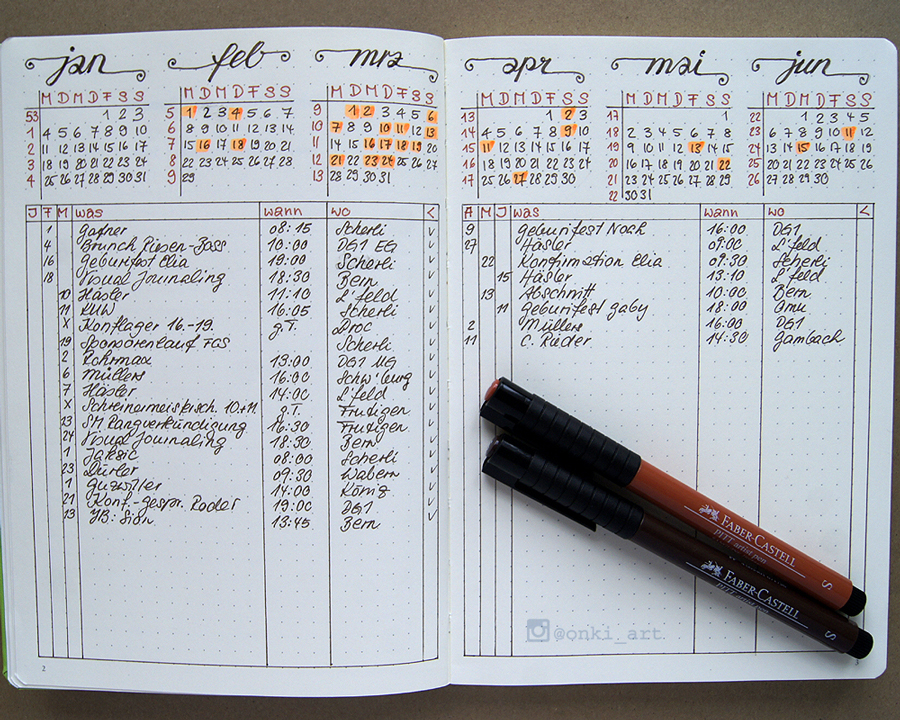 jan
M D M D F S S
53 1 2 3
1 4 5 6 7 8 9 10
2 11 12 13 14 15 16 17
3 18 19 20 21 22 23 24
4 25 26 27 28 29 30 31
feb
M D M D F S S
5 1 2 3 4 5 6 7
6 8 9 10 11 12 13 14
7 15 16 17 18 19 20 21
8 22 23 24 25 26 27 28
9 29
mrz
M D M D F S S
9 1 2 3 4 5 6
10 7 8 9 10 11 12 13
11 14 15 16 17 18 19 20
12 21 22 23 24 25 26 27
13 28 29 30 31
J F M was wann wo <
1 Gafner 08:15 Scherli ✓
4 Brunch Riesen-Bass 10:00 DG1 EG ✓
16 Geburifest Elia 19:00 Scherli ✓
18 Visual Journaling 18:30 Bern ✓
10 Häsler 11:10 L'feld ✓
11 KUW 16:05 Scherli ✓
X Konflager 16.-19. g.T. ✓
19 Sponsorenlauf FGS Scherli ✓
2 Rohrmax 13:00 DG1 UG ✓
6 Müllers 16:00 Schw'burg ✓
7 Häsler 14:00 L'feld ✓
X 10.+11 g.T. Frutigen ✓
13 SM Rangverkündigung 16:30 Frutigen ✓
24 Visual Journaling 18:30 Bern ✓
1 08:00 Scherli ✓
23 Dürler 09:30 Wabern ✓
1 14:00 Köniz ✓
21 Konf.-gespr. Roder 19:00 DG1 ✓
13 YB: Sion 13:45 Bern ✓
2
apr
M D M D F S S
13 1 2 3
14 4 5 6 7 8 9 10
15 11 12 13 14 15 16 17
16 18 19 20 21 22 23 24
17 25 26 27 28 29 30
mai
M D M D F S S
17 1
18 2 3 4 5 6 7 8
19 9 10 11 12 13 14 15
20 16 17 18 19 20 21 22
21 23 24 25 26 27 28 29
22 30 31
jun
M D M D F S S
22 1 2 3 4 5
23 6 7 8 9 10 11 12
24 13 14 15 16 17 18 19
25 20 21 22 23 24 25 26
26 27 28 29 30
A M J was wann wo <
9 Geburifest Noah 16:00 DG1
27 Häsler 09:00 L'feld
22 Konfirmation Elia 09:30 Scherli
15 Häsler 13:10 L'feld
13 Abschnitt 10:00 Bern
11 Geburifest Gaby 18:00 Gmu
2 Müllers 16:00 DG1
11 C. Rieder 14:30 Gambach
FABER-CASTELL
PITT artist pen
S
FABER-CASTELL
PITT artist pen
S
@onki_art